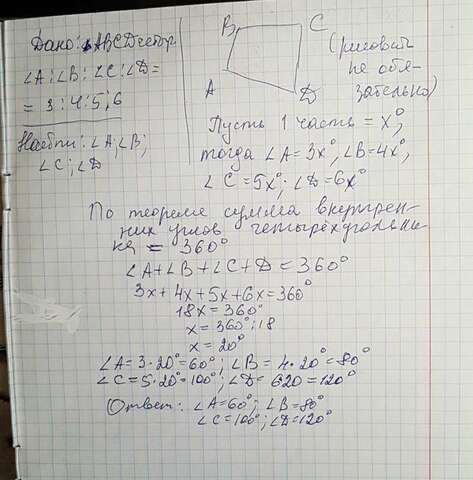 Дано: ABCD четыр
∠A:∠B:∠C:∠D=
= 3:4:5:6
Найти: ∠A; ∠B;
∠C; ∠D
B C
A D
(рисовать
не обя-
зательно)
Пусть 1 часть = x°,
тогда ∠A=3x°; ∠B=4x°;
∠C=5x°; ∠D=6x°
По теореме сумма внутрен-
них углов четырёхугольни-
ка = 360°
∠A+∠B+∠C+∠D=360°
3x+4x+5x+6x=360°
18x=360°
x=360°:18
x=20°
∠A=3·20°=60°; ∠B=4·20°=80°
∠C=5·20°=100°; ∠D=620=120°
Ответ: ∠A=60°; ∠B=80°
∠C=100°; ∠D=120°